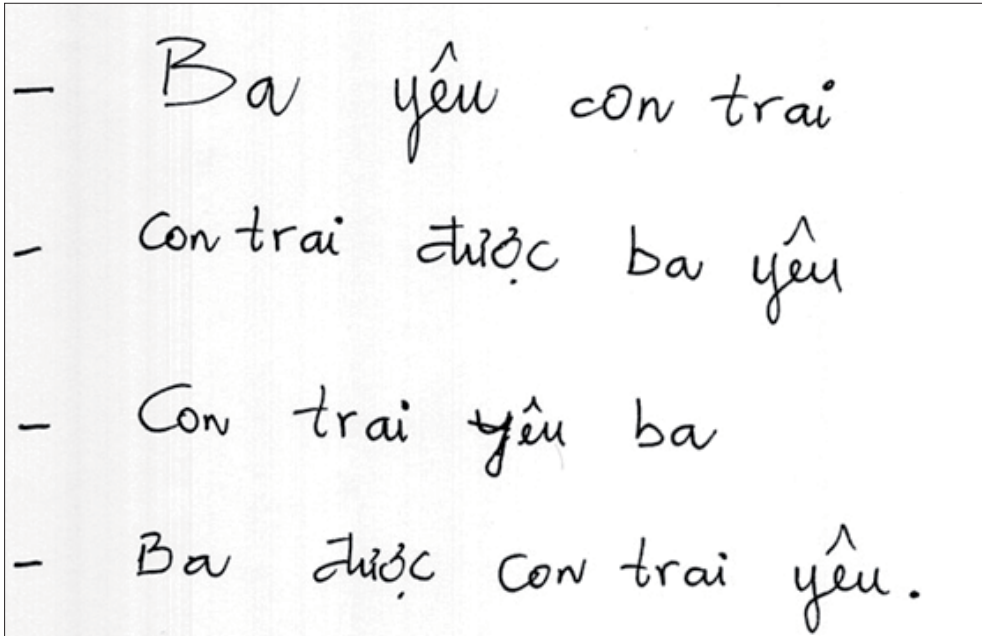 - Ba yêu con trai
- Con trai được ba yêu
- Con trai yêu ba
- Ba được con trai yêu.